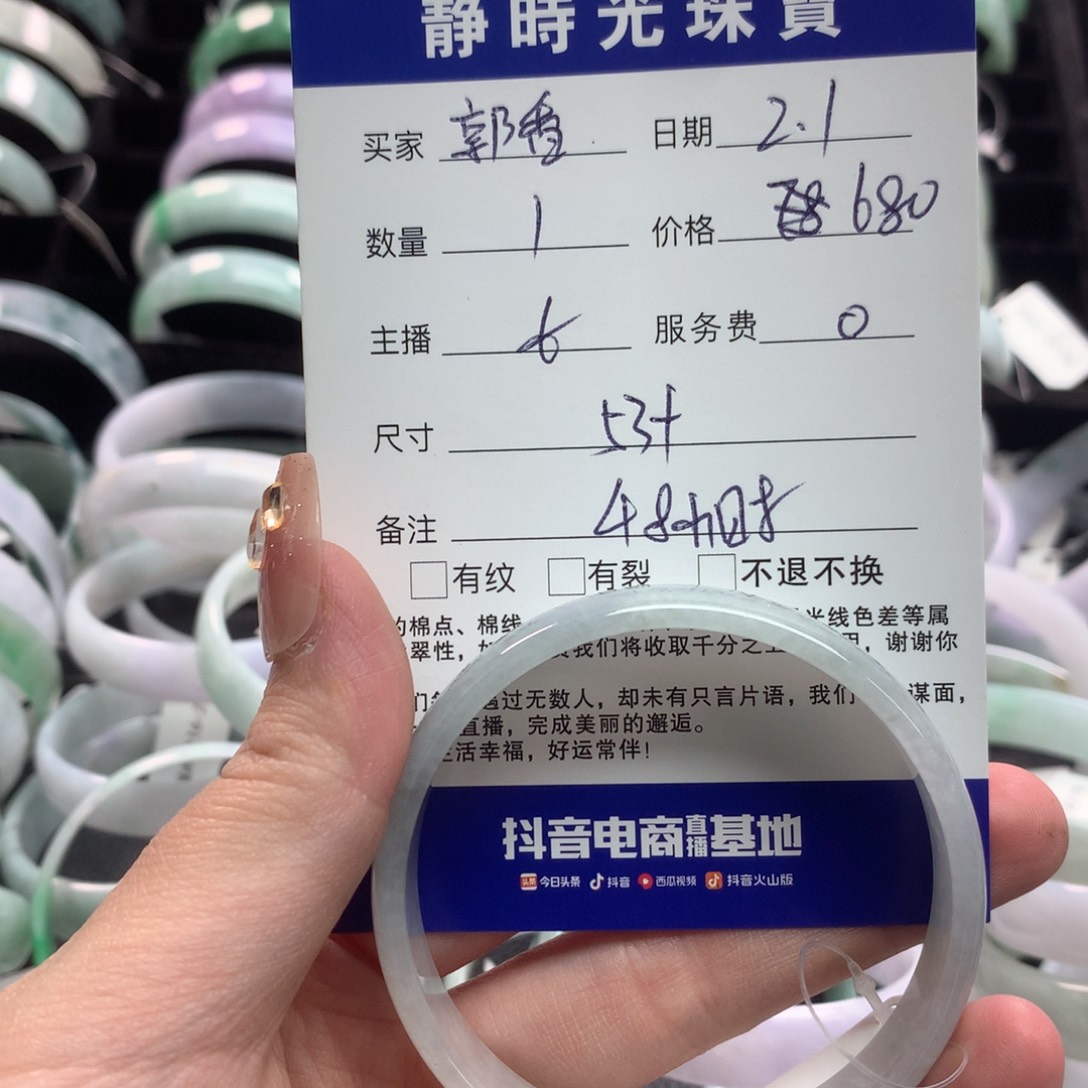 静時光珠寶
买家 郭香 日期 2.1
数量 1 价格 680
主播 6 服务费 0
尺寸 53+
备注 48小时
有纹 有裂 不退不换
的棉点、棉线 光线色差等属
翠性, 我们将收取千分之 , 谢谢你
过无数人,却未有只言片语,我们 谋面,
直播,完成美丽的邂逅。
生活幸福,好运常伴!
抖音电商直播基地
头条 今日头条 抖音 西瓜视频 抖音火山版